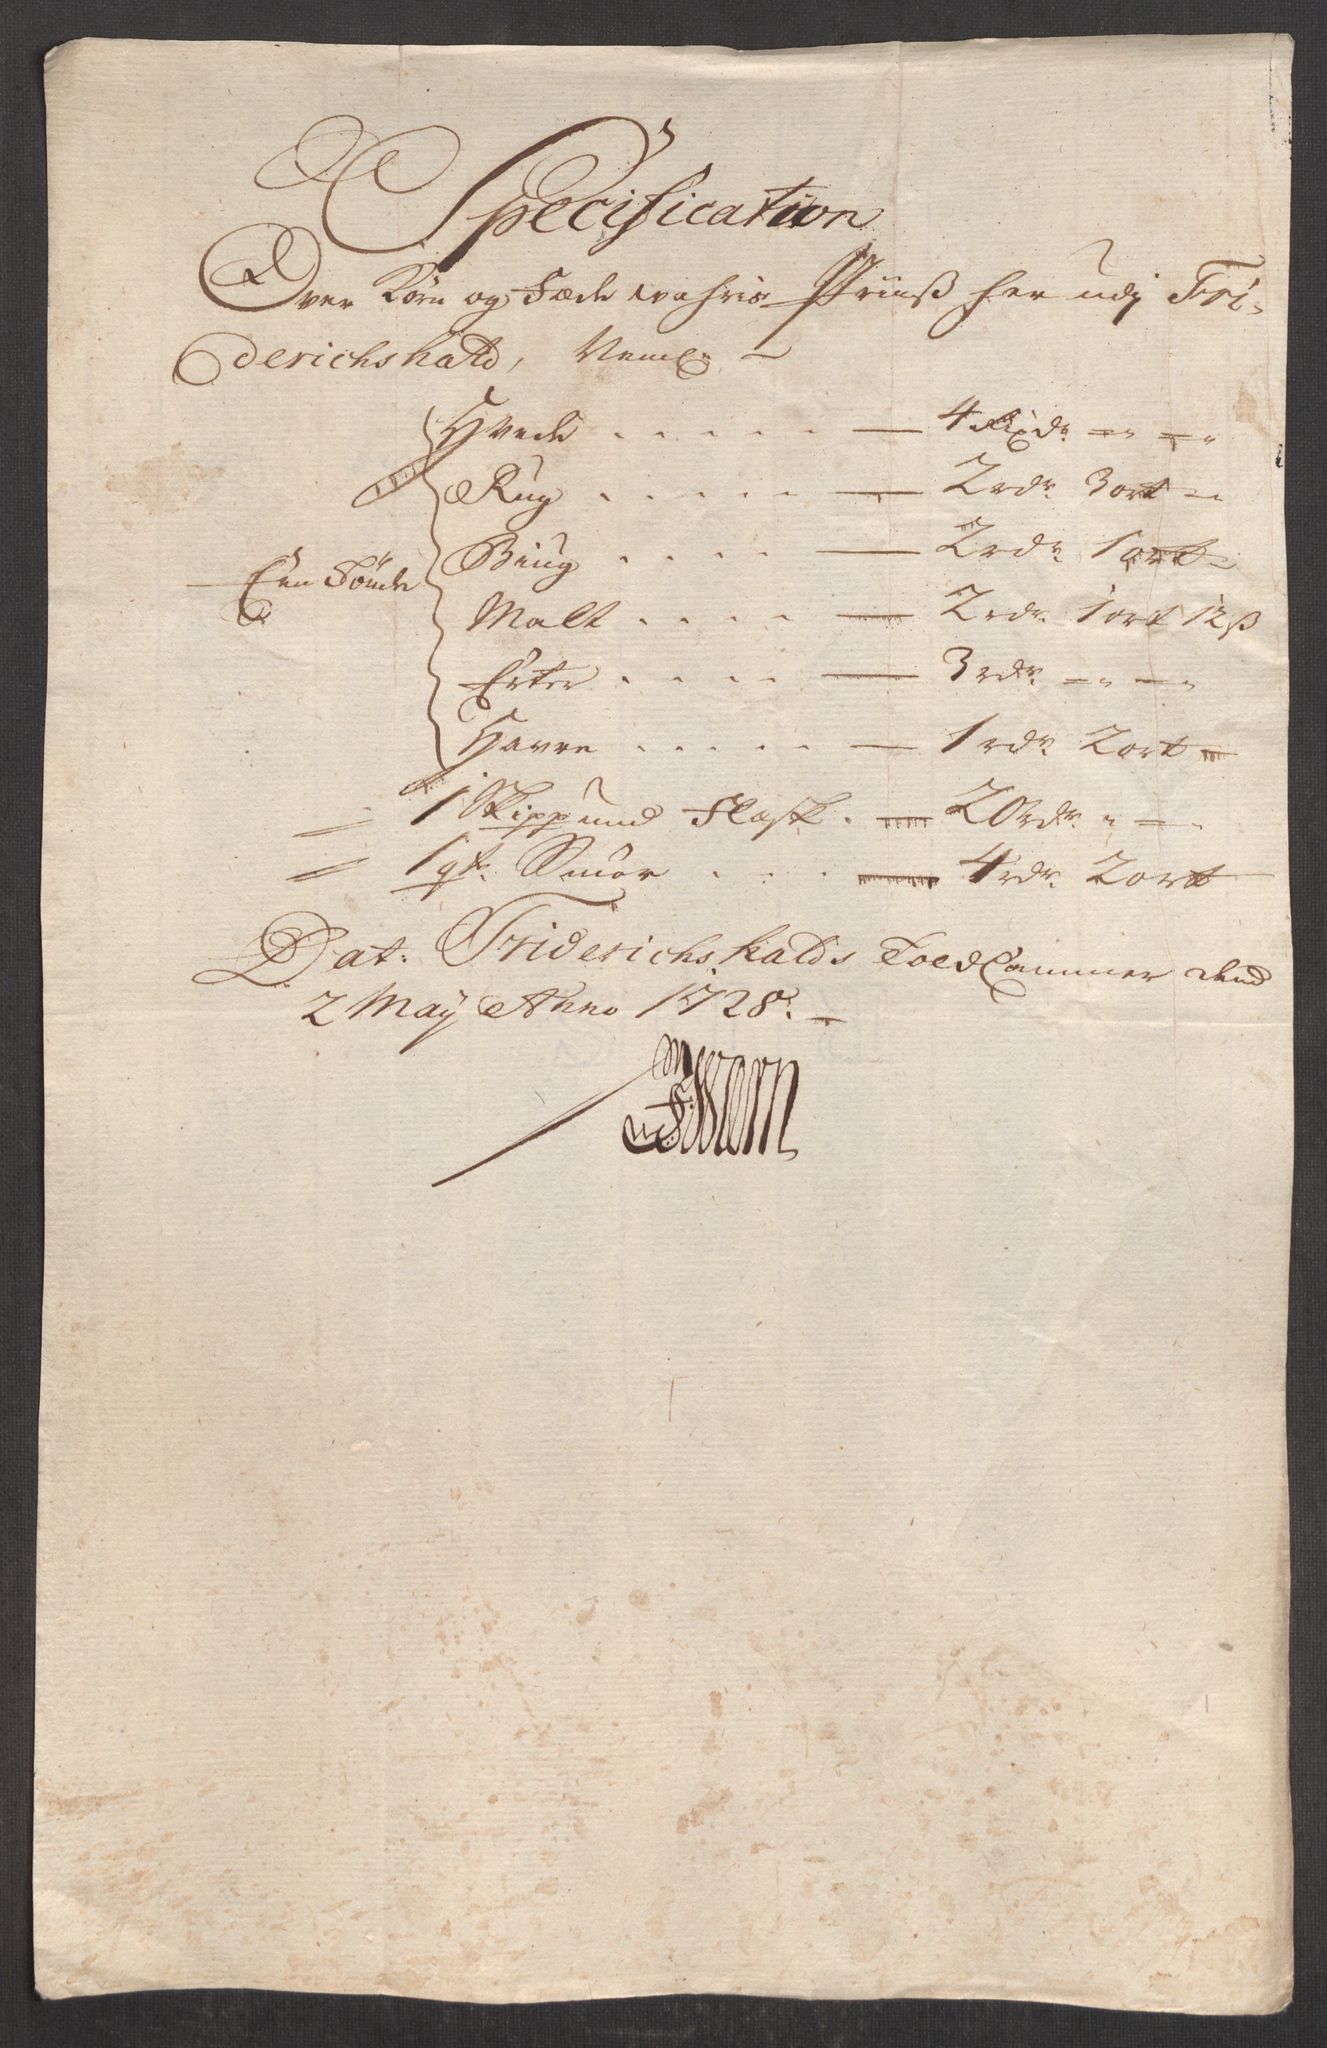 Specification
Over Korn og Fæde wahris Priiß her udj Fri-
derichshald, Neml:
Hvede . . . . . — 4 Rixd: — —
Rug . . . . . — 2 rdr. 3 ort —
Biug . . . . — 2 rdr. 1 ort —
Een Tönde
Malt . . . . — 2 rdr. 1 ort 12 ß
Erter . . . . — 3 rdr. — —
Havre . . . . . — 1 rdr. 2 ort —
1 Skippund Flæsk . — 20 rdr. — —
1 qt. Smör . . . — 4 rdr. 2 ort
Dat. Friderichshalds ToldCammer dend
2 Maÿ Anno 1728.